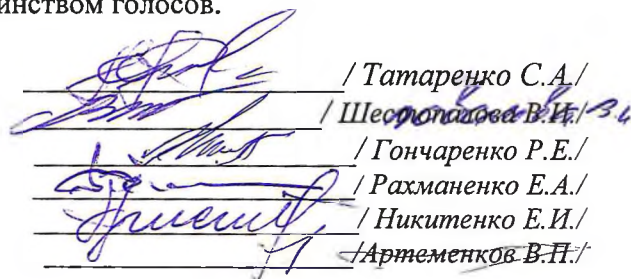 инством голосов.
/ Татаренко С.А./
/ Шестопалова В.И./
/ Гончаренко Р.Е./
/ Рахманенко Е.А./
/ Никитенко Е.И./
/Артеменков В.П./